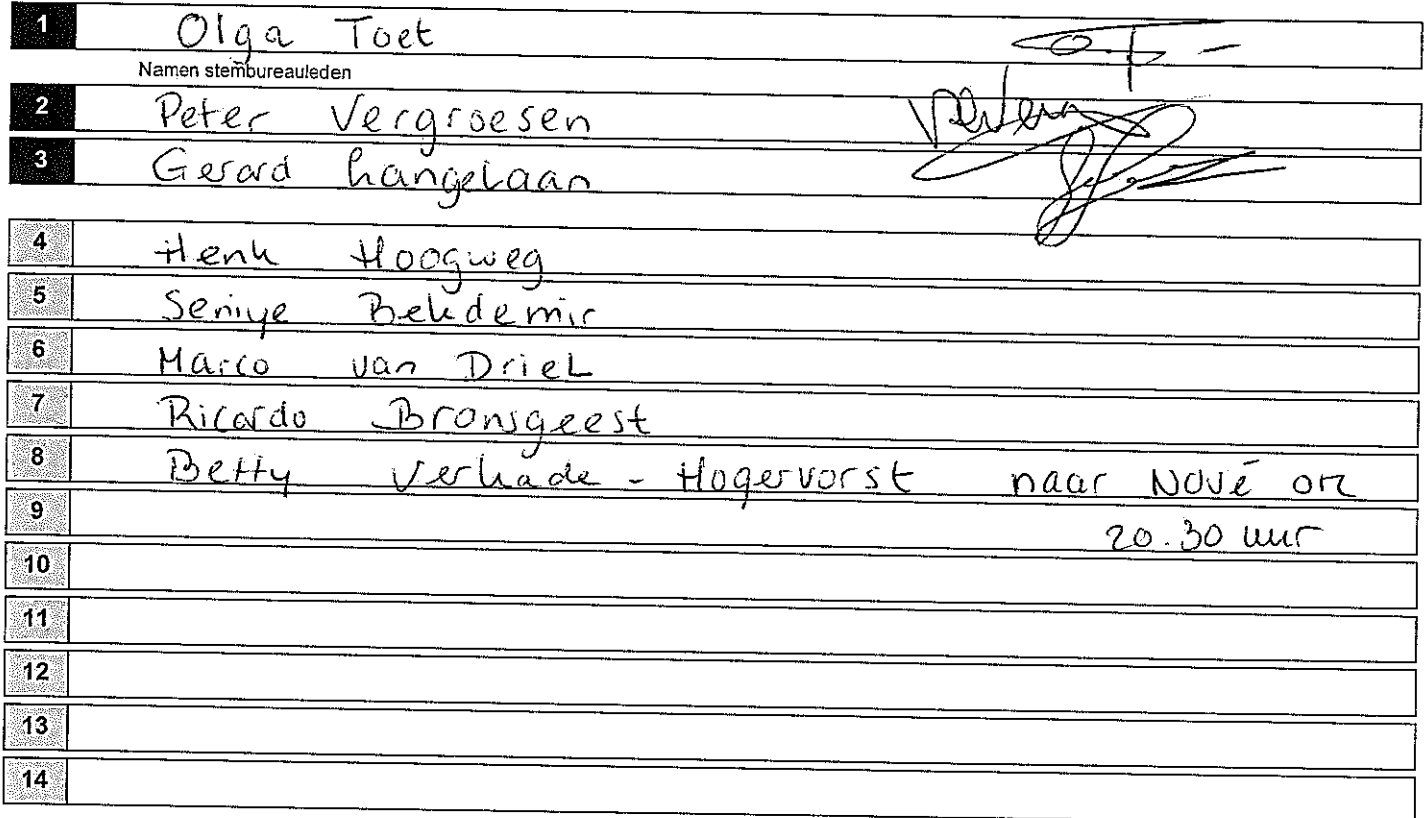 1 Olga Toet
Namen stembureauleden
2 Peter Vergroesen
3 Gerard Langelaan
4 Henk Hoogweg
5 Seniye Bekdemir
6 Marco van Driel
7 Ricardo Bronsgeest
8 Betty Verkade - Hogervorst naar Nové
9 20.30 uur
10
11
12
13
14